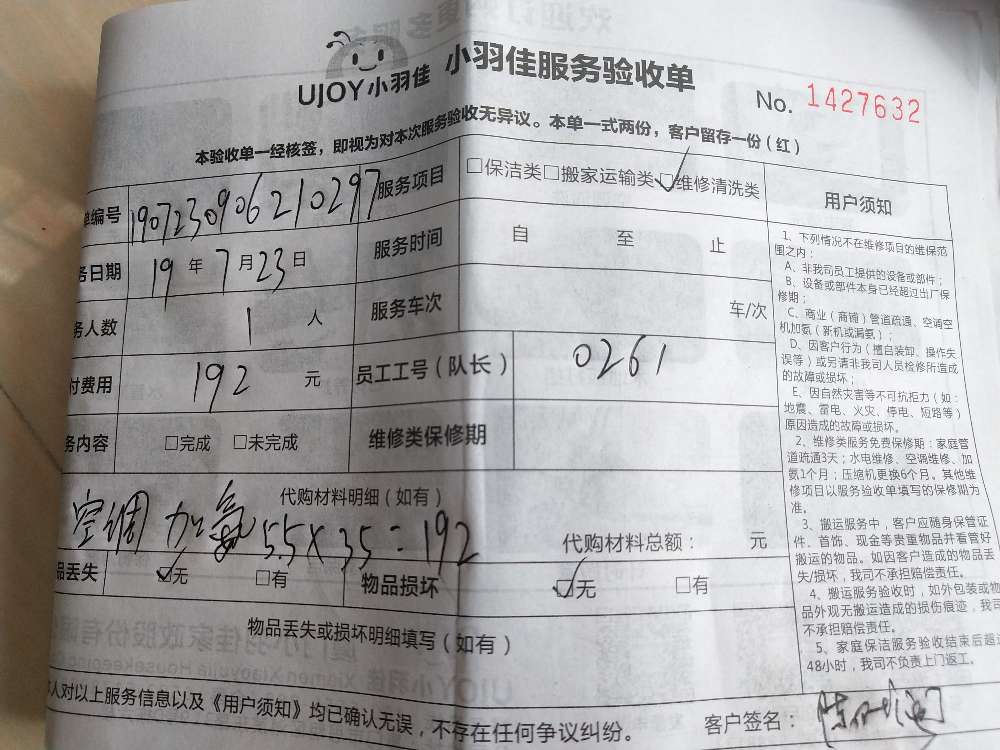 UJOY小羽佳 小羽佳服务验收单 No. 1427632
本验收单一经核签，即视为对本次服务验收无异议。本单一式两份，客户留存一份（红）
单编号 190723090621029​7 服务项目 □保洁类□搬家运输类☑维修清洗类
务日期 19 年 7 月 23 日 服务时间 自 至 止
务人数 1 人 服务车次 车/次
付费用 192 元 员工工号（队长） 0261
务内容 □完成 □未完成 维修类保修期
代购材料明细（如有）
空调 加氨 5.5×35=192
代购材料总额： 元
品丢失 ☑无 □有 物品损坏 ☑无 □有
物品丢失或损坏明细填写（如有）
人对以上服务信息以及《用户须知》均已确认无误，不存在任何争议纠纷。
客户签名：
用户须知
1、下列情况不在维修项目的维保范
围之内：
A、非我司员工提供的设备或部件；
B、设备或部件本身已经超过出厂保
修期；
C、商业（商铺）管道疏通、空调空
机加氨（新机或漏氨）；
D、因客户行为（擅自装卸、操作失
误等）或另请非我司人员检修所造成
的故障或损坏；
E、因自然灾害等不可抗拒力（如：
地震、雷电、火灾、停电、短路等）
原因造成的故障或损坏。
2、维修类服务免费保修期：家庭管
道疏通3天；水电维修、空调维修、加
氨1个月；压缩机更换6个月。其他维
修项目以服务验收单填写的保修期为
准。
3、搬运服务中，客户应随身保管证
件、首饰、现金等贵重物品并看管好
搬运的物品。如因客户造成的物品丢
失/损坏，我司不承担赔偿责任。
4、搬运服务验收时，如外包装或物
品外观无搬运造成的损伤痕迹，我司
不承担赔偿责任。
5、家庭保洁服务验收结束后超过
48小时，我司不负责上门返工。